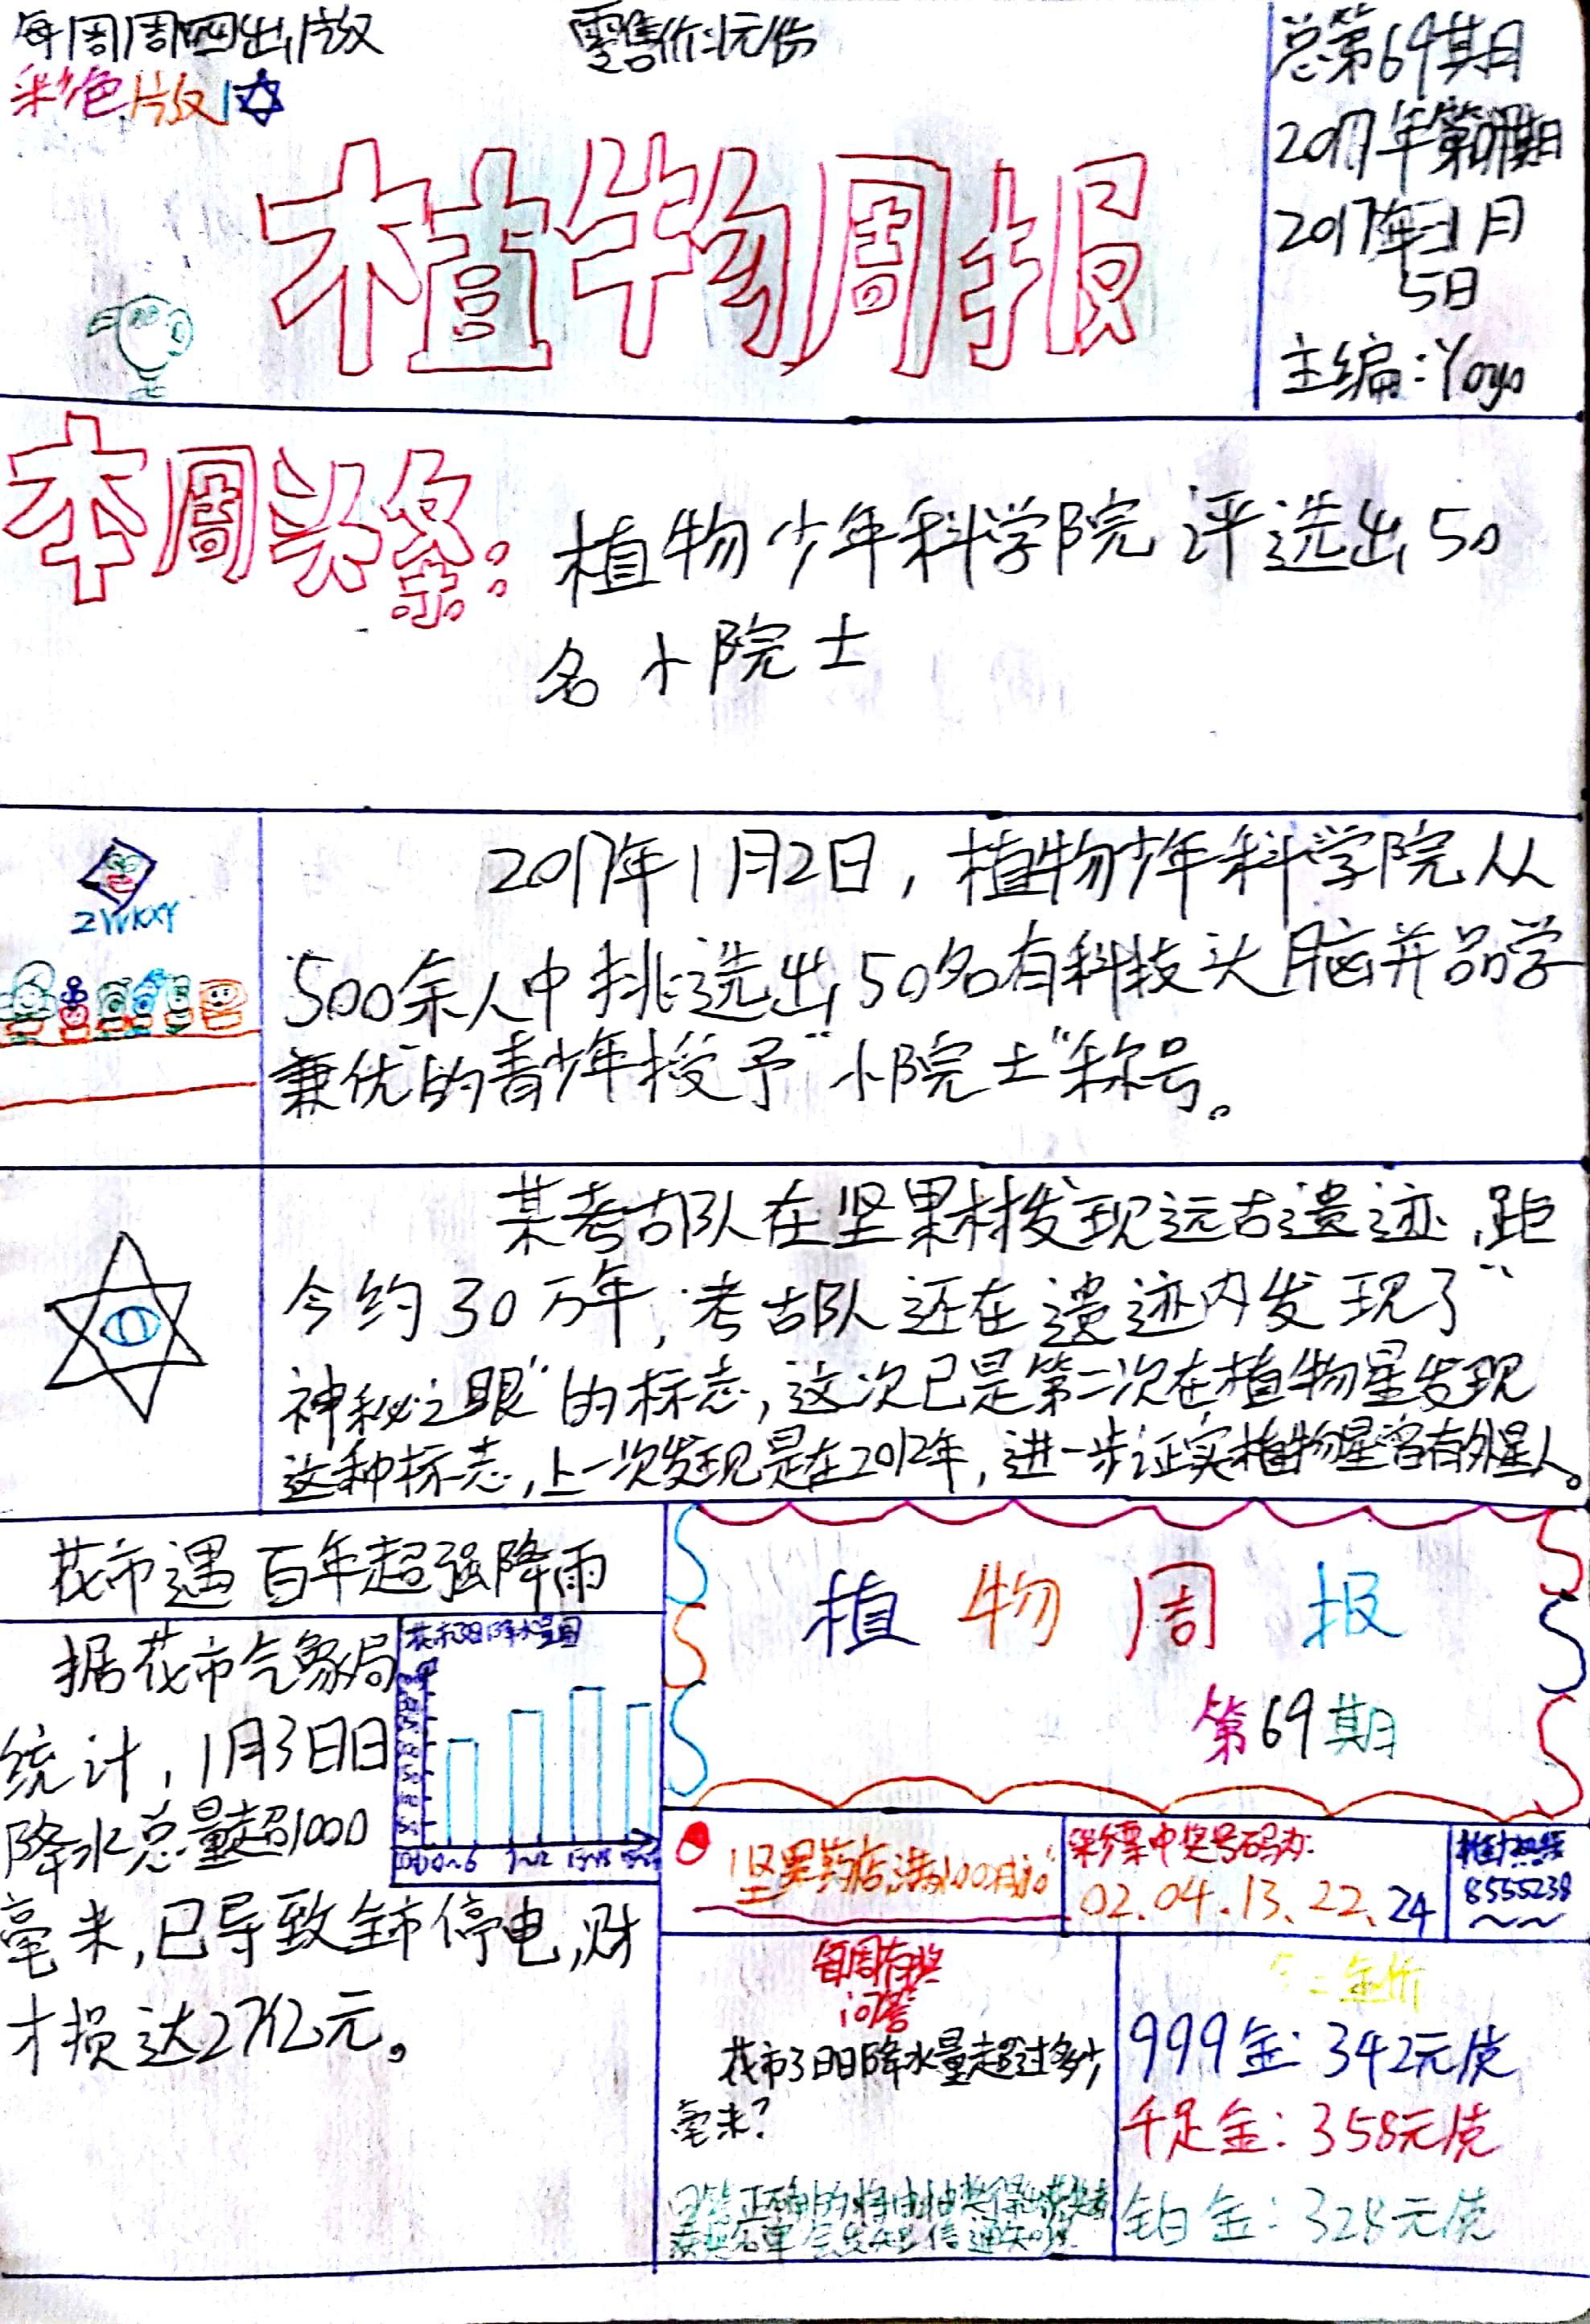 每周周四出版
零售价:1元/份
彩色版
植物周报
总第69期
2017年第01期
2017年1月
5日
主编:Yoyo
本周头条:
植物少年科学院评选出50
名小院士
ZWKXY
2017年1月2日,植物少年科学院从
500余人中挑选出50名有科技头脑并品学
兼优的青少年授予“小院士”称号。
某考古队在坚果村发现远古遗迹,距
今约30万年,考古队还在遗迹内发现了“
神秘之眼”的标志,这次已是第二次在植物星发现
这种标志,上一次发现是在2012年,进一步证实植物星曾有外星人。
花市遇百年超强降雨
据花市气象局
统计,1月3日日
降水总量超1000
毫米,已导致全市停电,财
才损达27亿元。
花市3日降水量图
植物周报
第69期
坚果药店满100减10
彩票中奖号码为:
02.04.13.22.24
8555238
每周有奖
问答
花市3日日降水量超过多少
毫米?
回答正确的将由抽奖得出获奖者
获奖名单会发短信通知哦
金价
999金:342元/克
千足金:358元/克
铂金:328元/克